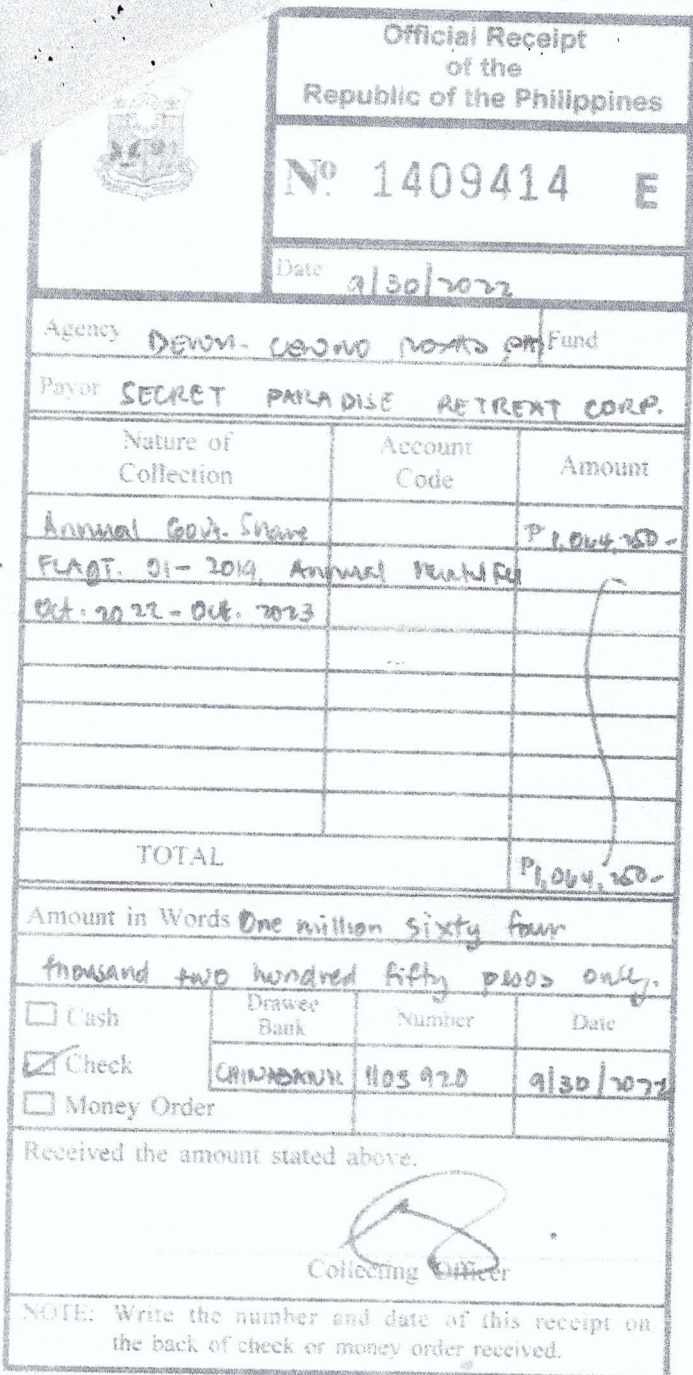 Official Receipt
of the
Republic of the Philippines
Nº 1409414 E
Date 9/30/2022
Agency Fund
Payor SECRET PARADISE RETREAT CORP.
Nature of Collection Account Code Amount
Annual Gov't. Share ₱ 1,064,250-
FLAgT. 01-2019, Annual
Oct. 2022 - Oct. 2023
TOTAL ₱1,064,250-
Amount in Words One million sixty four
thousand two hundred fifty pesos only.
Cash Drawee Bank Number Date
Check CHINABANK 1105920 9/30/2022
Money Order
Received the amount stated above.
Collecting Officer
NOTE: Write the number and date of this receipt on
the back of check or money order received.